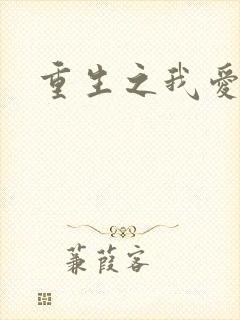 重生之我爱
蒹葭客